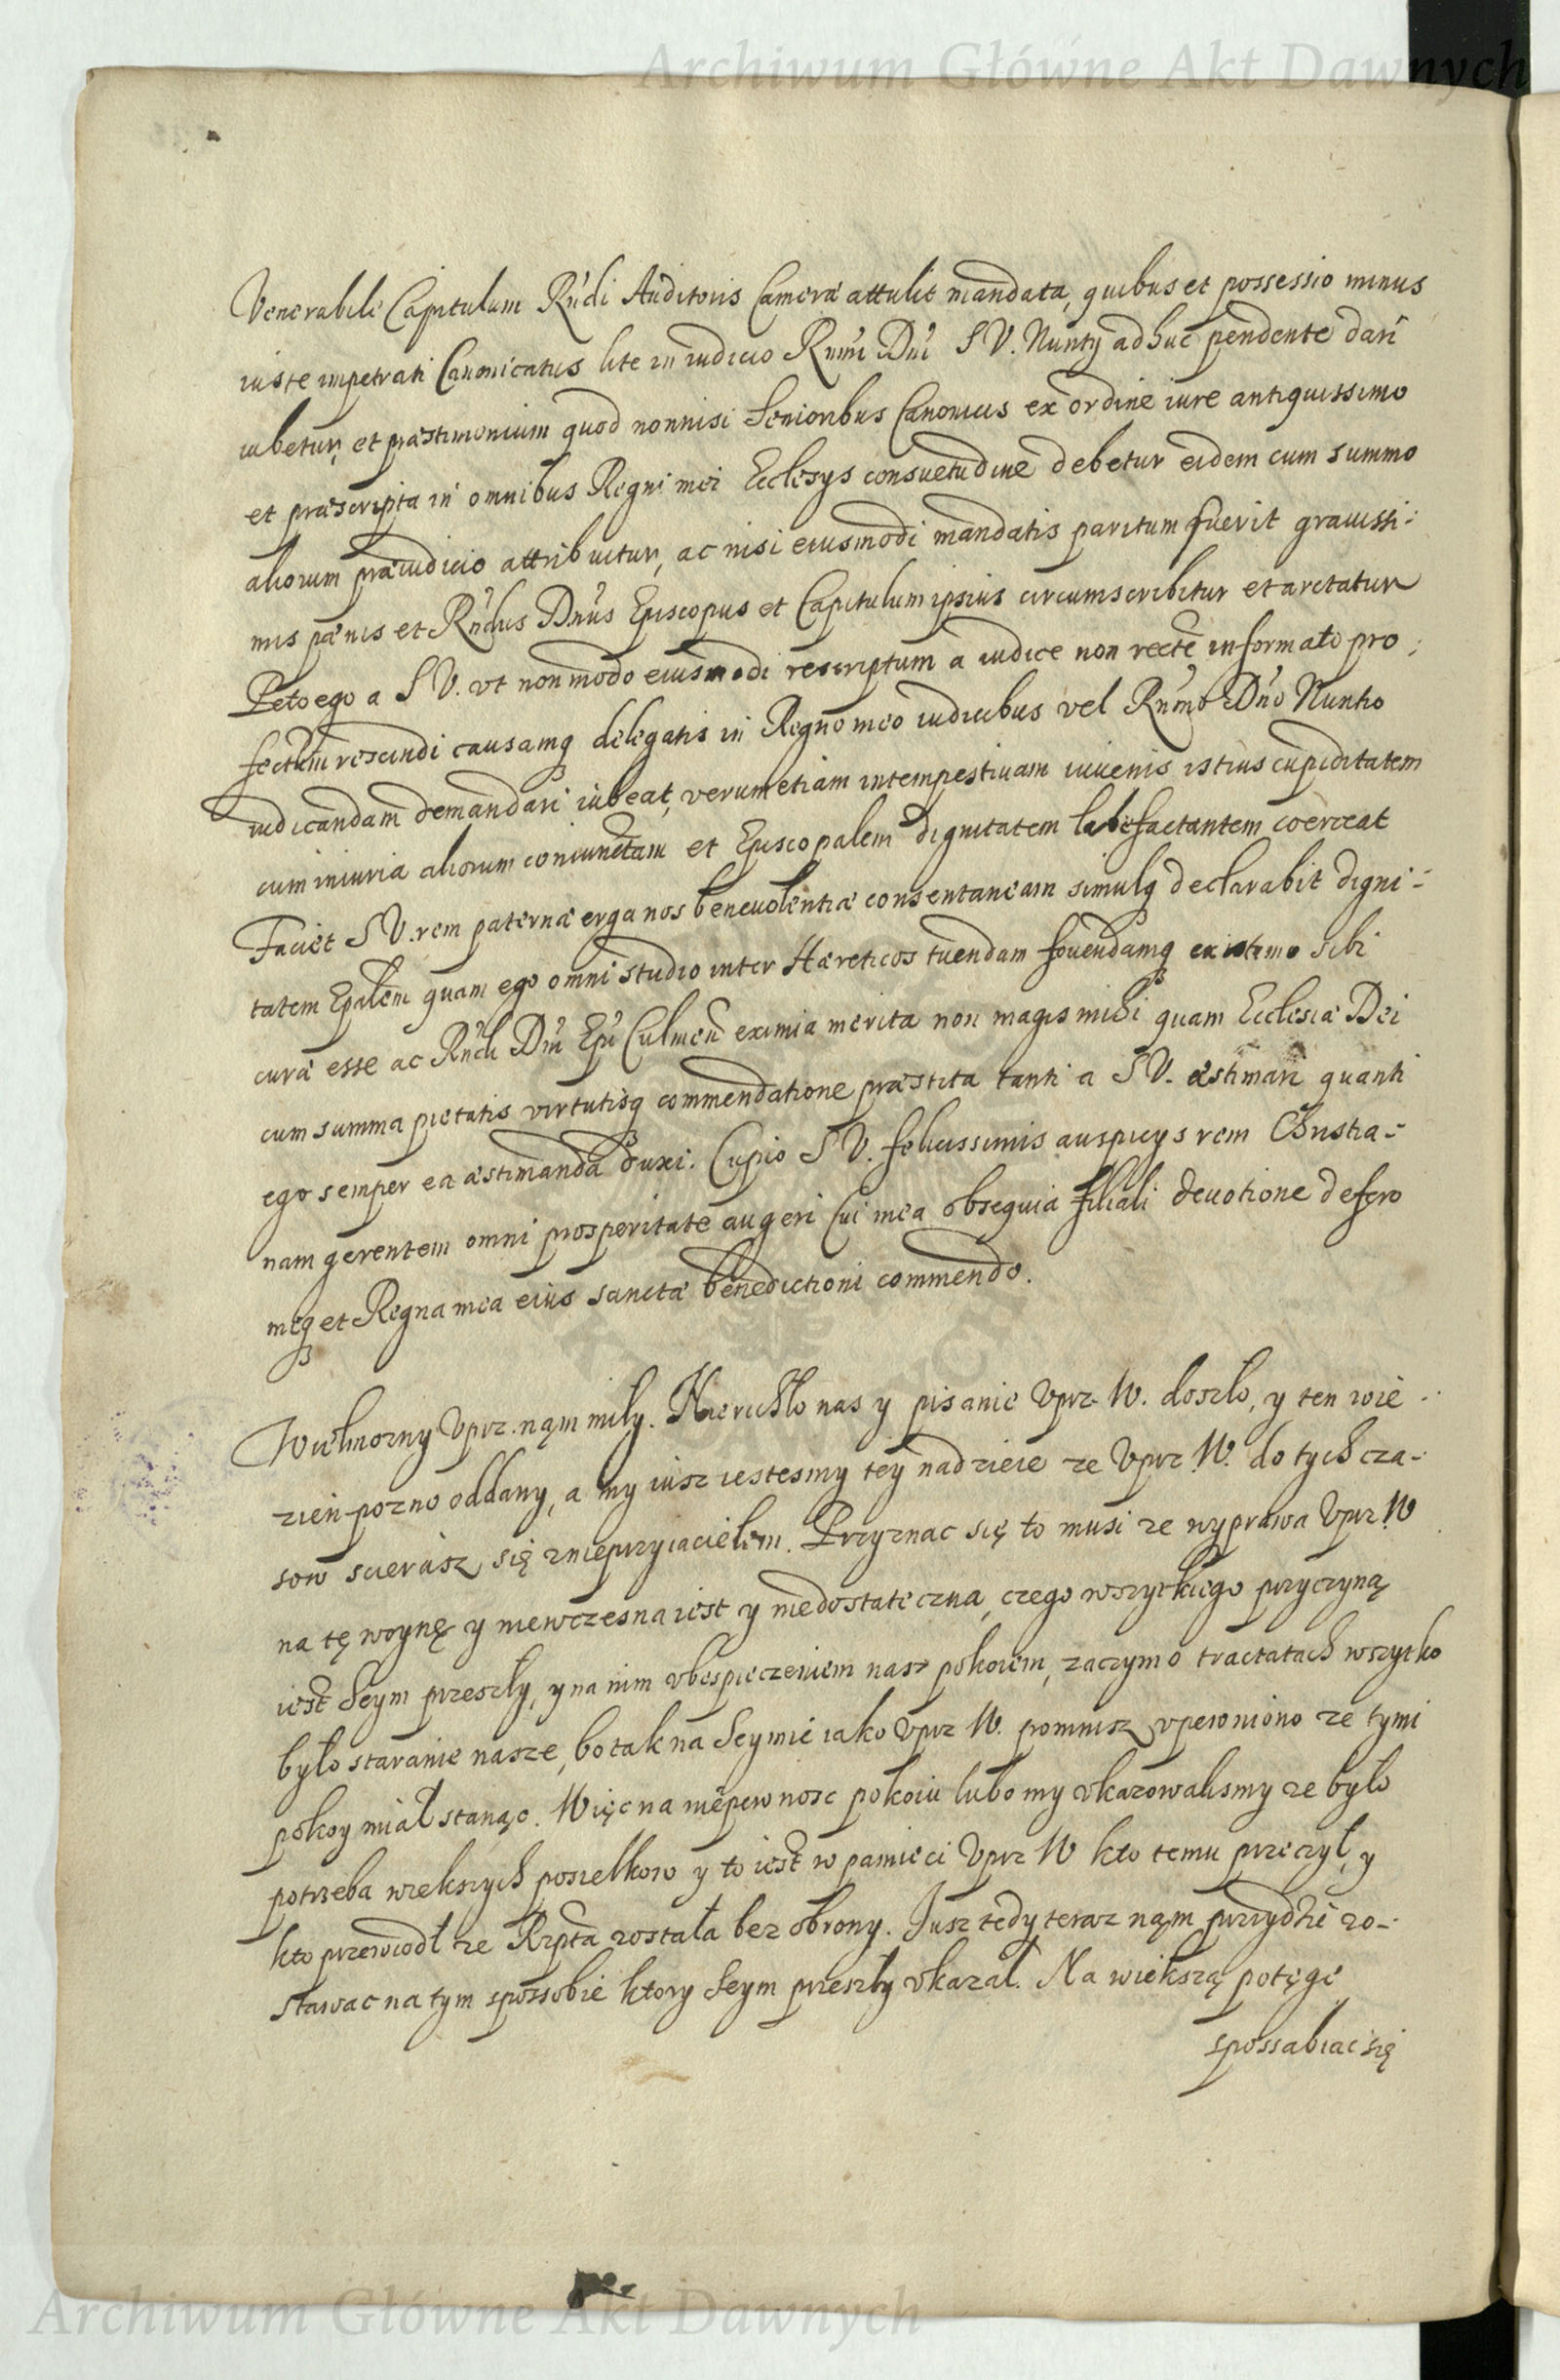 Archiwum Główne Akt Dawnych
Venerabile Capitulum Rñdi Auditoris Cameræ attulit mandata, quibus et possessio minus
iuste impetrati Canonicatus lite in iudicio Rmi Dni S V. Nuntÿ adhuc pendente dari
iubetur, et præstimonium quod nonnisi senioribus Canonicis ex ordine iure antiquissimo
et præscripta in omnibus Regni mei Ecclesÿs consuetudine debetur eidem cum summo
aliorum præiudicio attribuitur, ac nisi eiusmodi mandatis paritum fuerit grauissi-
mis pænis et Rndus Dnus Episcopus et Capitulum ipsius circumscribitur et arctatur
Peto ego a S V. vt non modo eiusmodi rescriptum a iudice non recte informato pro-
fectum rescindi causamq delegatis in Regno meo iudicibus vel Rmo Dno Nuntio
iudicandam demandari iubeat, verum etiam intempestiuam iuuenis istius cupiditatem
cum iniuria aliorum coniunctam et Episcopalem dignitatem labefactantem coerceat
Faciet S V. rem paternæ erga nos beneuolentiæ consentaneam simulq declarabit digni-
tatem Epalem quam ego omni studio inter Hæreticos tuendam fouendamq existimo sibi
curæ esse ac Rndi Dni Epi Culmen eximia merita non magis mihi quam Ecclesiæ Dei
cum summa pietatis virtutisq commendatione præstita tanti a S V. æstimari quanti
ego semper ea æstimanda duxi. Cupio S V. felicissimis auspicÿs rem Christia-
nam gerentem omni prosperitate augeri Cui mea obsequia filiali deuotione defero
meq et Regna mea eius sanctæ benedictioni commendo.
Wielmozny Vprz. nąm miły. Nierichło nas y pisanie Vprz. W. doszło, y ten wie-
zien pozno oddany, a my iusz iestesmy tey nadzieie ze Vprz W. do tych cza-
sow scierasz się z nieprzyiacielem. Przyznac się to musi ze wyprawa Vprz W
na tę woynę y niewczesna iest y niedostateczna, czego wszytkiego przyczyną
iest Seym przeszły, y na nim vbespieczeniem nasz pokoiem, zaczym o tractatach wszytko
było staranie nasze, bo tak na Seymie iako Vprz W. pomnisz vpewniono ze tymi
pokoy miał stanąc. Więc na niepewnosc pokoiu lubo my vkazowalismy ze było
potrzeba wiekszych posielkow y to iest w pamięci Vprz W kto temu przeczył, y
kto przewiodł ze Rzpta została bez obrony. Jusz tedy teraz nąm przydzie zo-
stawac na tym spossobie ktory Seym przeszły vkazał. Na wiekszą potęgę
spossabiac się
Archiwum Główne Akt Dawnych